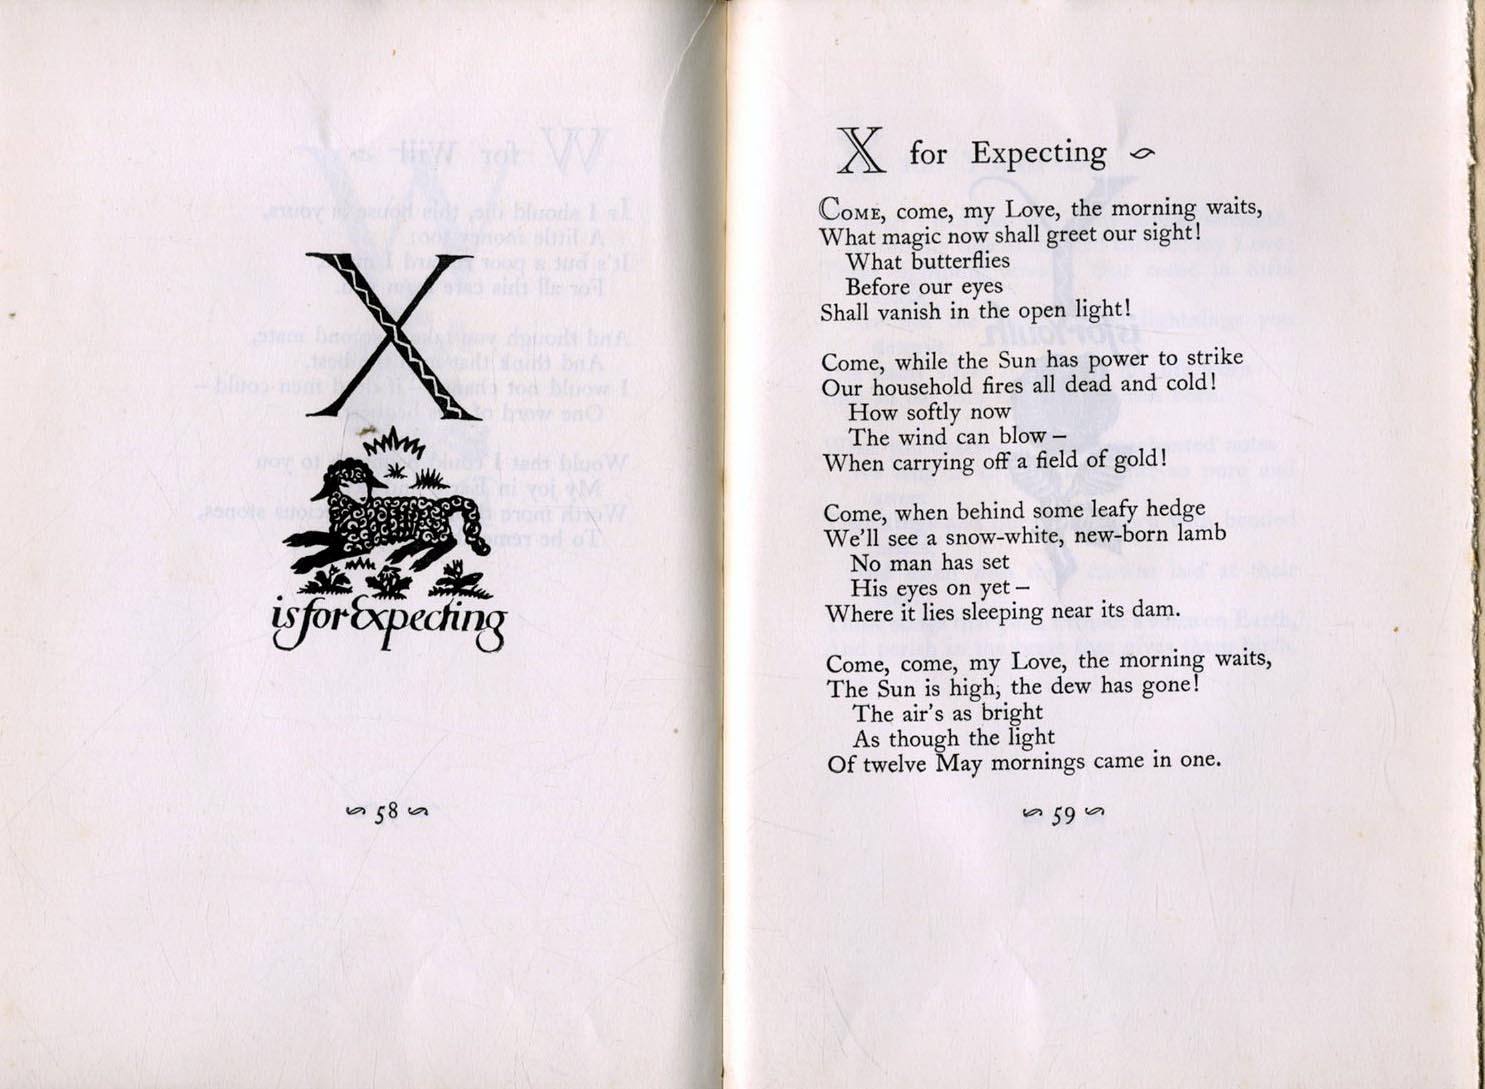 X
is for Expecting
58
X for Expecting
COME, come, my Love, the morning waits,
What magic now shall greet our sight!
What butterflies
Before our eyes
Shall vanish in the open light!
Come, while the Sun has power to strike
Our household fires all dead and cold!
How softly now
The wind can blow –
When carrying off a field of gold!
Come, when behind some leafy hedge
We'll see a snow-white, new-born lamb
No man has set
His eyes on yet –
Where it lies sleeping near its dam.
Come, come, my Love, the morning waits,
The Sun is high, the dew has gone!
The air's as bright
As though the light
Of twelve May mornings came in one.
59